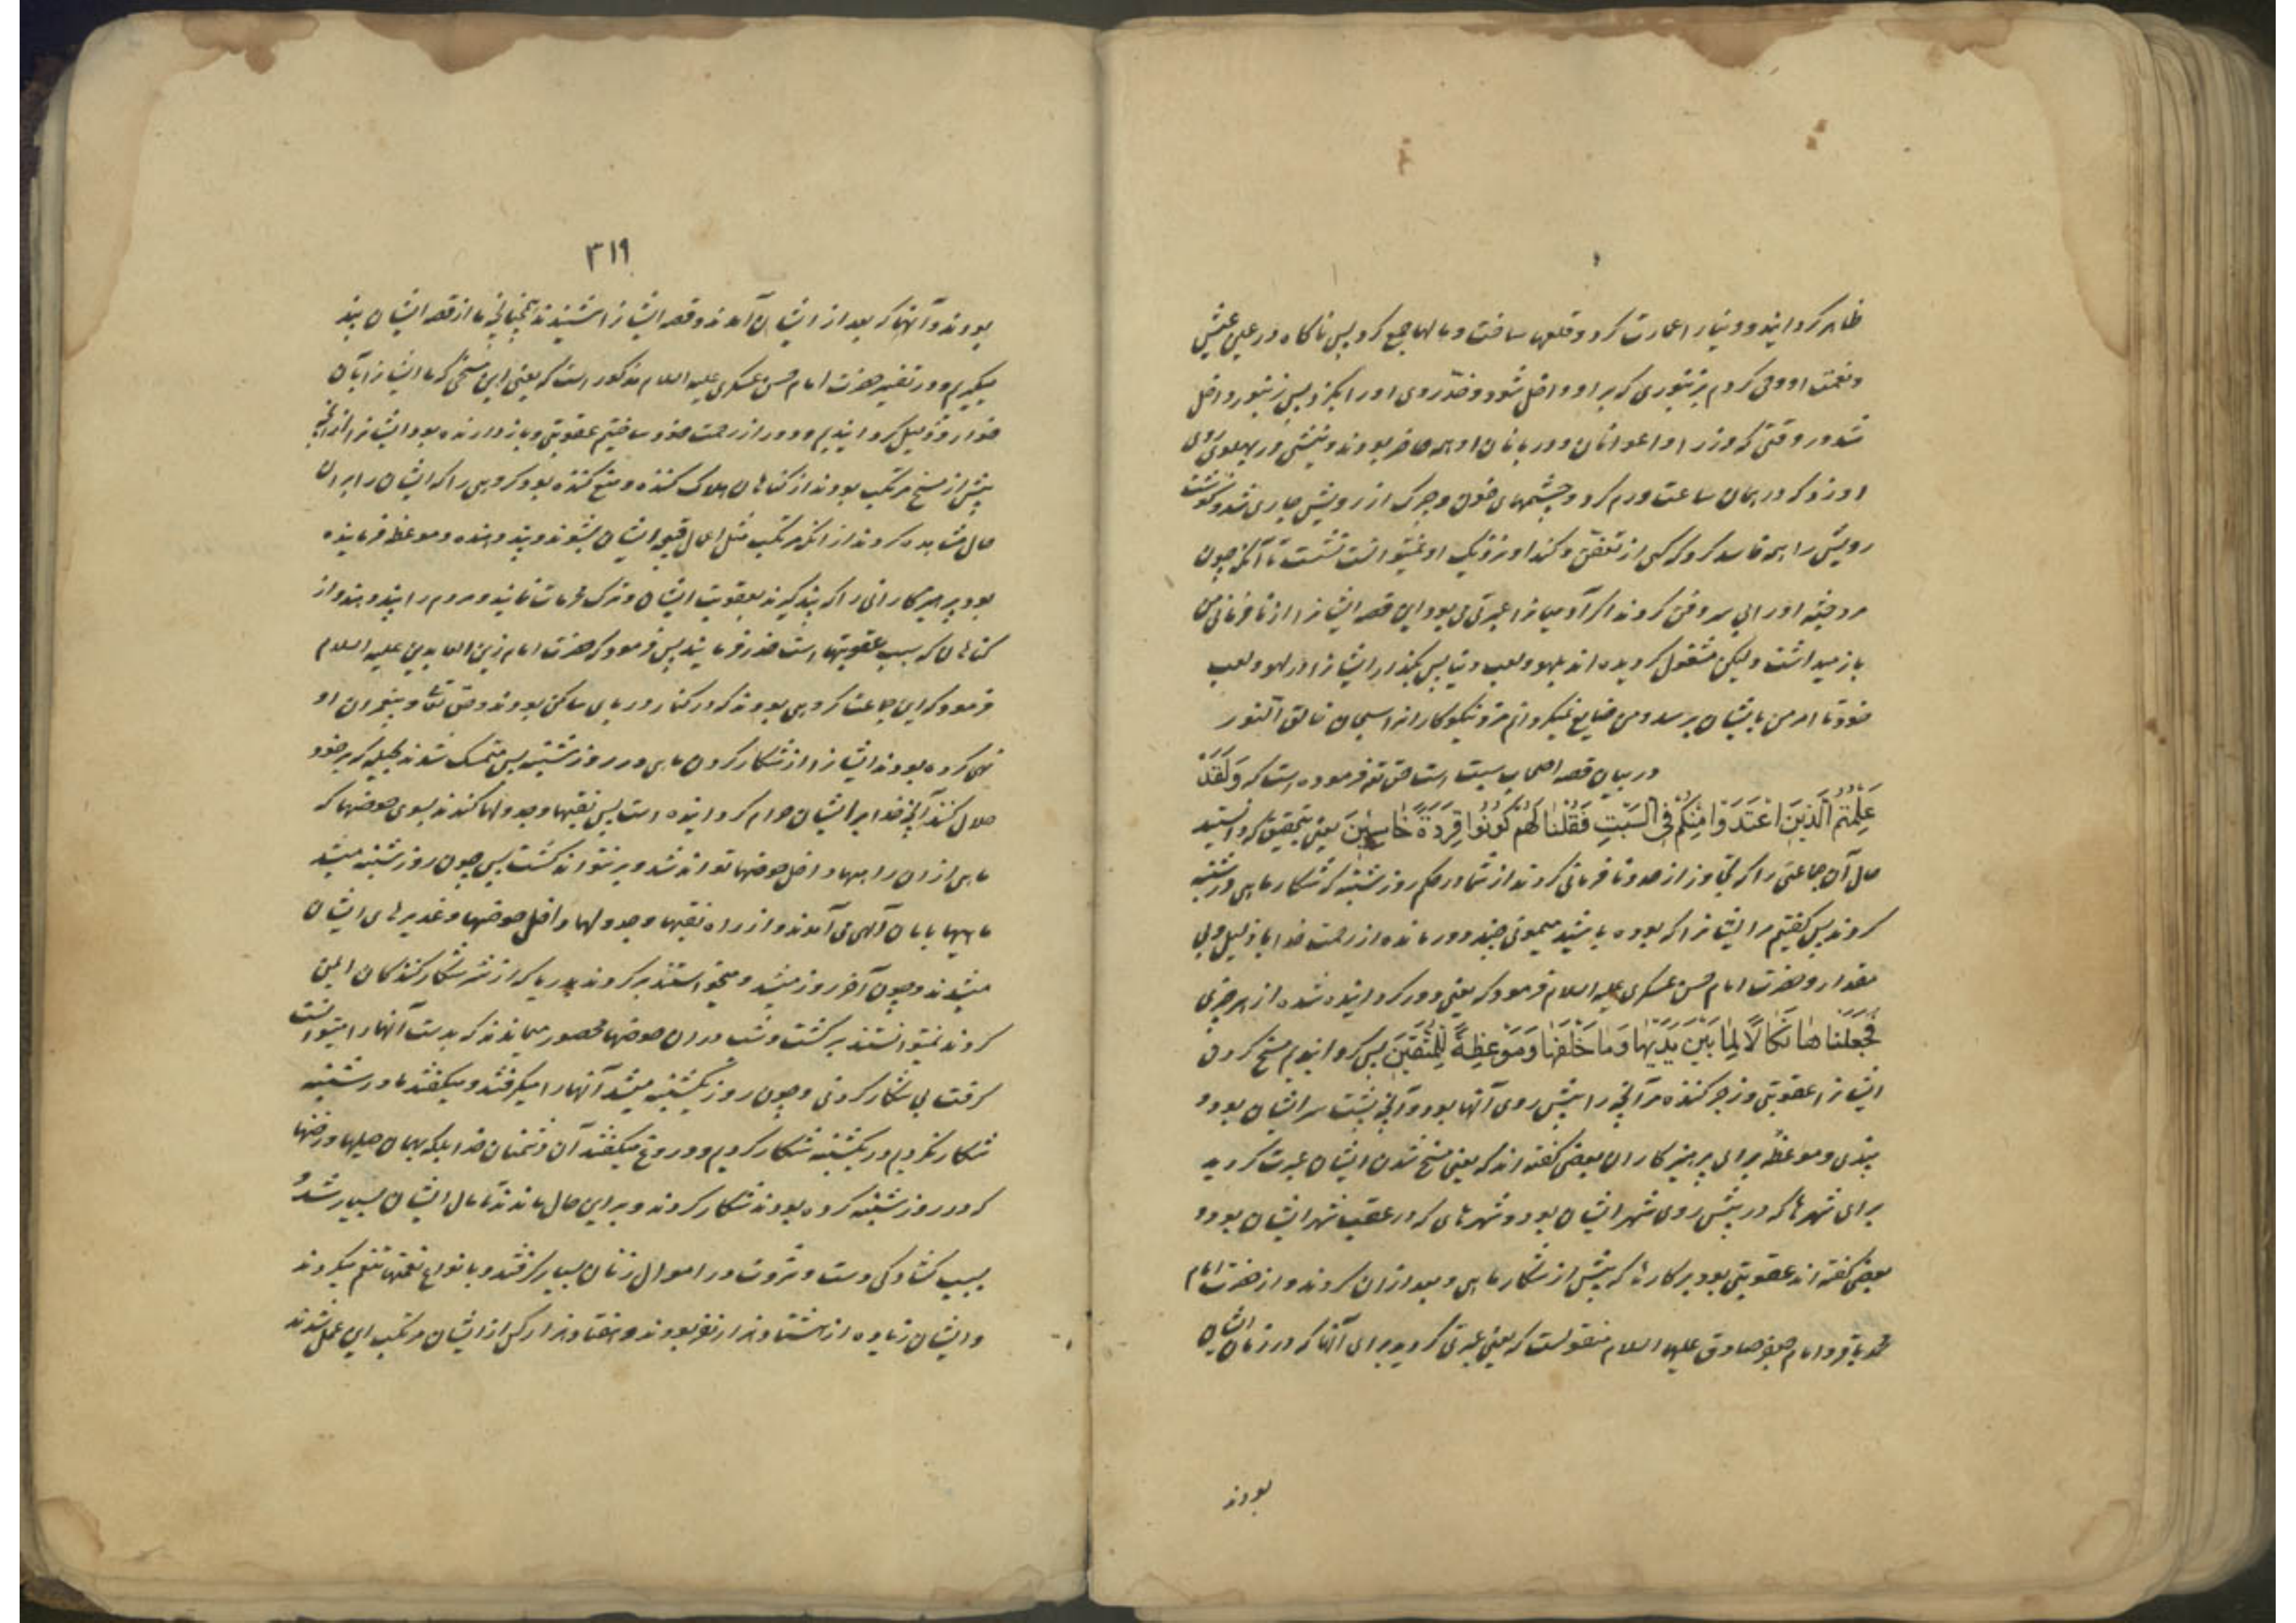 ظاهر گردانید و دنیا را عمارت کرد و قلعها ساخت و مالها جمع کرد پس ناگاه در عین عیش
و نعمت او وحی کردم بزنبوری که بر او داخل شود و خدّ روی او را بگزد پس زنبور داخل
شد در وقتی که وزرا و اعوانان و دربانان او همه حاضر بودند و نیشی در پهلوی روی
او زد که در همان ساعت ورم کرد و چشمهای خون و چرک از رویش جاری شد و گوشت
رویش را همه فاسد کرد که کسی از تعفّن و گند او نزدیک او نمیتوانست نشست تا آنکه چون
مرد جثه او را بی سر دفن کردند اگر آدمیانرا عبرتی می بود این قصه ایشانرا از نافرمانی من
باز میداشت ولیکن مشغول گردیده اند بلهو و لعب دنیا پس بگذار ایشانرا در لهو و لعب
خود تا امر من بایشان برسد و من ضایع نمیگردانم مزد نیکوکارانرا سبحان خالق النور
در بیان قصه اصحاب سبت است حق تع فرموده است که وَلَقَدْ
عَلِمْتُمُ الَّذِینَ اعْتَدَوْا مِنْکُمْ فِی السَّبْتِ فَقُلْنَا لَهُمْ کُونُوا قِرَدَةً خَاسِئِینَ یعنی بتحقیق که دانستید
حال آن جماعتی را که تجاوز از حد و نافرمانی کردند از شما در حکم روز شنبه که شکار ماهی در شنبه
کردند پس گفتیم مر ایشانرا که بوده باشید میمونی چند دور مانده از رحمت خدا یا ذلیل و بی
مقدار و حضرت امام حسن عسکری علیه السلام فرمود که یعنی دور گردانیده شده از هر خیری
فَجَعَلْنَاهَا نَکَالًا لِمَا بَیْنَ یَدَیْهَا وَمَا خَلْفَهَا وَمَوْعِظَةً لِلْمُتَّقِینَ پس گردانیدیم مسخ کردن
ایشانرا عقوبتی و زجر کننده مر آنچه را پیش روی آنها بود و آنچه پشت سر ایشان بود و
پندی و موعظه برای پرهیزکاران بعضی گفته اند که یعنی مسخ شدن ایشان عبرت گردید
برای شهرها که در پیش روی شهر ایشان بود و شهرهای که در عقب شهر ایشان بود و
بعضی گفته اند عقوبتی بود بر کارها که پیش از شکار ماهی و بعد از ان کردند و از حضرت امام
محمد باقر و امام جعفر صادق علیهما السلام منقولست که یعنی عبرتی گردید برای آنها که در زمان ایشان
بودند
۳۱۹
بودند و آنها که بعد از ایشان آمدند و قصه ایشانرا شنیدند همچنانچه ما از قصه ایشان پند
میگیریم و در تفسیر حضرت امام حسن عسکری علیه السلام مذکور است که یعنی این مسخی که ما ایشانرا بان
خوار و ذلیل گردانیدیم و دور از رحمت خود ساختیم عقوبتی و باز دارنده بود ایشانرا از آنچه
پیش از مسخ مرتکب بودند از گناهان هلاک کننده و منع کننده بود گروهی را که ایشان را بر ان
حال مشاهده کردند از آنکه مرتکب مثل اعمال قبیه ایشان بشوند و پند دهنده و موعظه فرماینده
بود پرهیزکارانی را که پند گیرند بعقوبت ایشان و ترک محرمات نمایند و مردم را پند دهند و از
گناهان که سبب عقوبتهاست حذر فرمایند پس فرمود که حضرت امام زین العابدین علیه السلام
فرمود که این جماعت گروهی بودند که در کنار دریای ساکن بودند و حق تعالی و پیغمبران او
نهی کرده بودند ایشانرا از شکار کردن ماهی در روز شنبه پس متمسک شدند بحیله که بر خود
حلال کنند آنچه خدا بر ایشان حرام گردانیده است پس نقبها و جدولها کندند بسوی حوضها که
ماهی از ان راهها داخل حوضها تواند شد و بر نتواند گشت پس چون روز شنبه میشد
ماهیها بامان الهی می آمدند و از راه نقبها و جدولها داخل حوضها و غدیرهای ایشان
میشدند و چون آخر روز میشد و میخواستند برگردند بدریا که از شر شکار کنندکان ایمن
گردند نمیتوانستند برگشت و شب در ان حوضها محصور میماندند که بدست آنها را میتوانست
گرفت بی شکار کردنی و چون روز یکشنبه میشد آنها را میگرفتند و میگفتند ما در شنبه
شکار نکردیم در یکشنبه شکار کردیم و دروغ میگفتند آن دشمنان خدا بلکه بهمان حیلها و رخنها
که در روز شنبه کرده بودند شکار کردند و بر این حال ماندند تا مال ایشان بسیار شد و
بسبب گشادگی دست و ثروت در اموال زنان بسیار گرفتند و بانواع نعمتها تنعم میکردند
و ایشان زیاده از هشتاد هزار نفر بودند و هفتاد هزار کس از ایشان مرتکب این عمل شدند